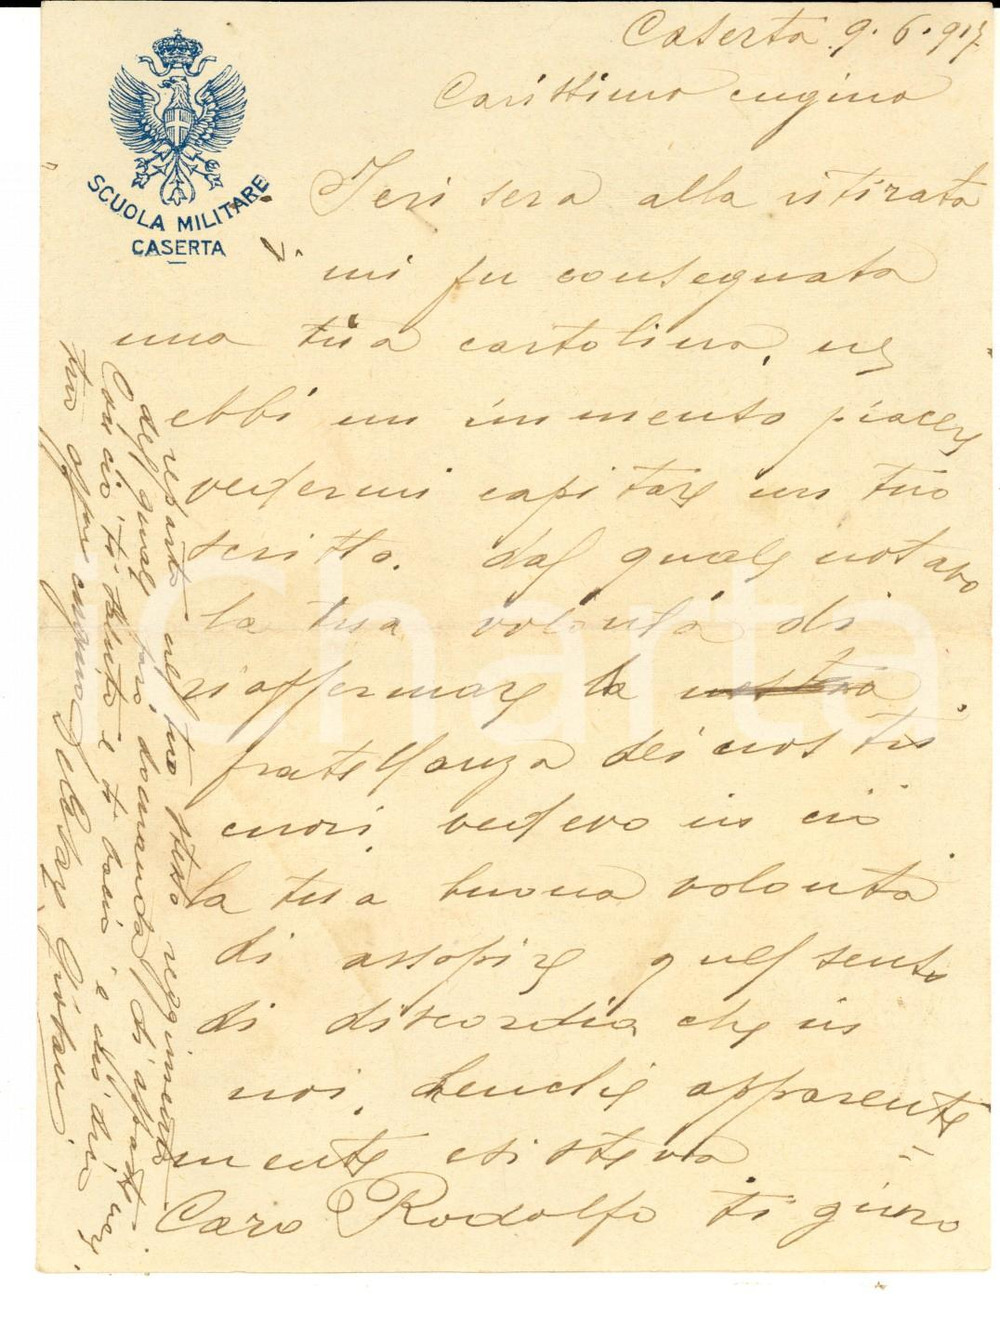 Caserta 9.6.917.
Carissimo cugino
SCUOLA MILITARE
CASERTA
Ieri sera alla ritirata
mi fu consegnata
una tua cartolina, ne
ebbi un immenso piacere
vedermi capitare un tuo
scritto. dal quale notavo
la tua volontà di
riaffermare la nostra
fratellanza dei nostri
cuori, vedevo in ciò
la tua buona volontà
di assopire quel senso
di discordia che in
noi, benchè apparente
mente esisteva
Caro Rodolfo ti giuro
reparto nel tuo stesso reggimento
del quale farò domanda di
Con ciò ti saluto e ti bacio e
tuo aff cugino Giovanni
iCharta